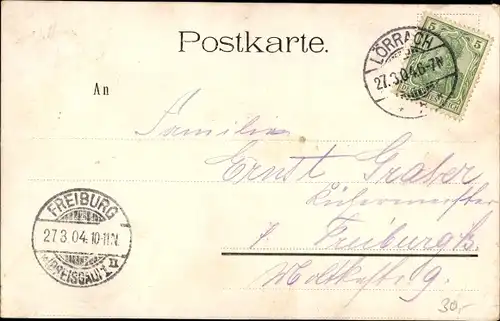 Postkarte.
5
5
LÖRRACH
27.3.04.6-7N.
An
Familie
Ernst Graber
FREIBURG
27.3.04.10-11N.
(BREISGAU) II
z. Freiburg i/B.
Moltkestr. 9.
30,-